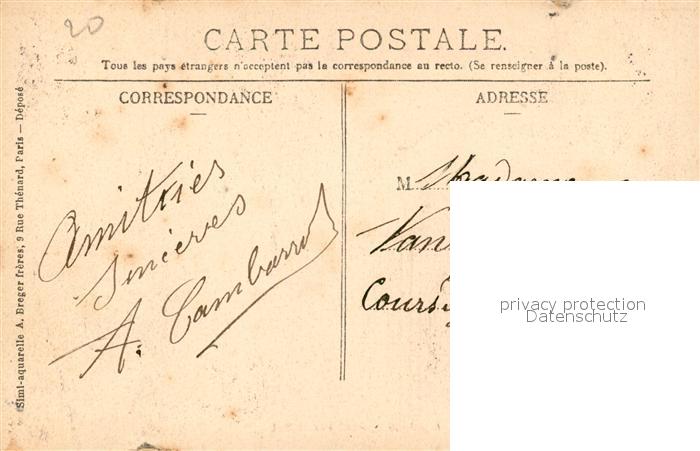 20
CARTE POSTALE.
Tous les pays étrangers n'acceptent pas la correspondance au recto. (Se renseigner à la poste).
CORRESPONDANCE
ADRESSE
Simi-aquarelle A. Breger frères, 9 Rue Thénard, Paris — Déposé
Amitiés
sincères
A.
M Madame
Van
Cours
privacy protection
Datenschutz